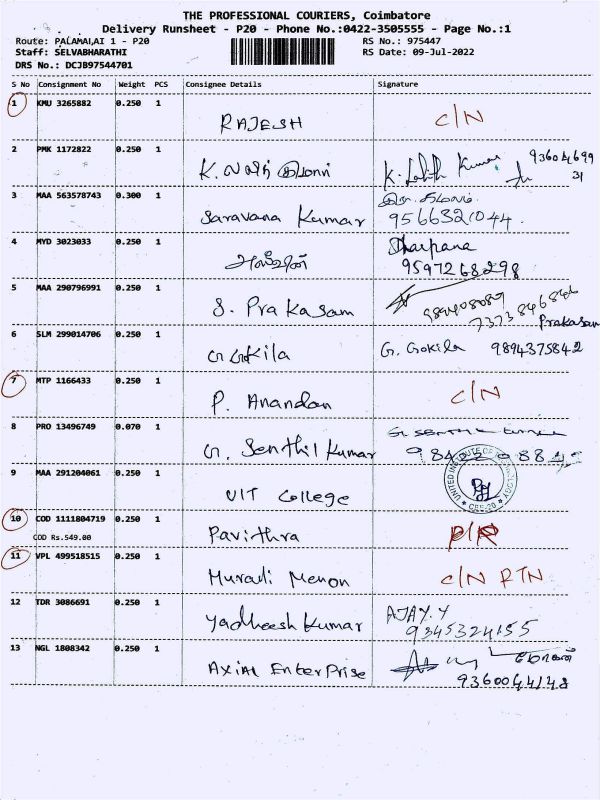 THE PROFESSIONAL COURIERS, Coimbatore
Delivery Runsheet - P20 - Phone No.:0422-3505555 - Page No.:1
Route: PALAMALAI 1 - P20 RS No.: 975447
Staff: SELVABHARATHI RS Date: 09-Jul-2022
DRS No.: DCJB97544701
S No Consignment No Weight PCS Consignee Details Signature
1 KMU 3265882 0.250 1 RAJESH C/N
2 PMK 1172822 0.250 1 K. லலித் குமார் K. Lalith Kumar
3 MAA 563578743 0.300 1 Saravana Kumar 9566321044.
4 MYD 3023033 0.250 1 Tharpana
9597268298
5 MAA 290796991 0.250 1 S. Prakasam 7373846846
Prakasam
6 SLM 299014706 0.250 1 G. Gokila 9894375842
7 MTP 1166433 0.250 1 P. Anandan C/N
8 PRO 13496749 0.070 1 G. Senthil Kumar
9 MAA 291204061 0.250 1 UIT College UNITED INSTITUTE OF TECHNOLOGY
CBE-20
10 COD 1111804719 0.250 1 Pavithra
COD Rs.549.00
11 VPL 499518515 0.250 1 Murali Menon C/N RTN
12 TDR 3086691 0.250 1 Yadheesh Kumar AJAY.Y
9345324155
13 NGL 1808342 0.250 1 Axial EnterPrise
9360044148